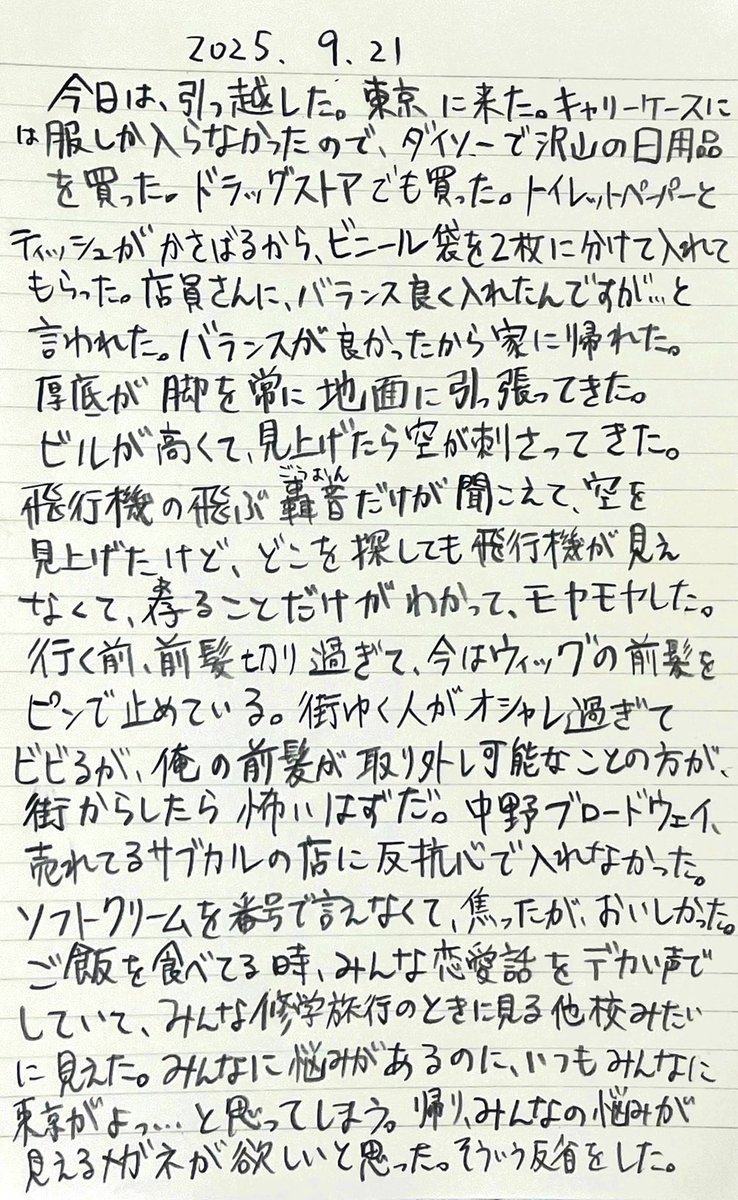 2025. 9.21
今日は、引っ越した。東京に来た。キャリーケースに
は服しか入らなかったので、ダイソーで沢山の日用品
を買った。ドラッグストアでも買った。トイレットペーパーと
ティッシュがかさばるから、ビニール袋を2枚に分けて入れて
もらった。店員さんに、バランス良く入れたんですが…と
言われた。バランスが良かったから家に帰れた。
厚底が脚を常に地面に引っ張ってきた。
ビルが高くて、見上げたら空が刺さってきた。
飛行機の飛ぶ轟音だけが聞こえて、空を
ごうおん
見上げたけど、どこを探しても飛行機が見え
なくて、ることだけがわかって、モヤモヤした。
行く前、前髪切り過ぎて、今はウィッグの前髪を
ピンで止めている。街ゆく人がオシャレ過ぎて
ビビるが、俺の前髪が取り外し可能なことの方が、
街からしたら怖いはずだ。中野ブロードウェイ、
売れてるサブカルの店に反抗心で入れなかった。
ソフトクリームを番号で言えなくて、焦ったが、おいしかった。
ご飯を食べてる時、みんな恋愛話をデカい声で
していて、みんな修学旅行のときに見る他校みたい
に見えた。みんなに悩みがあるのに、いつもみんなに
東京がよっ…と思ってしまう。帰り、みんなの悩みが
見えるメガネが欲しいと思った。そういう反省をした。